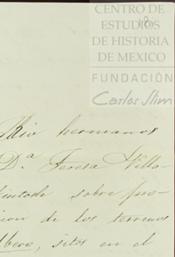 CENTRO DE
ESTUDIOS
DE HISTORIA
DE MEXICO
FUNDACIÓN
Carlos Slim
Mis hermanos
D.ª Teresa Villa-
sobre
cion de los terrenos
sitos en el